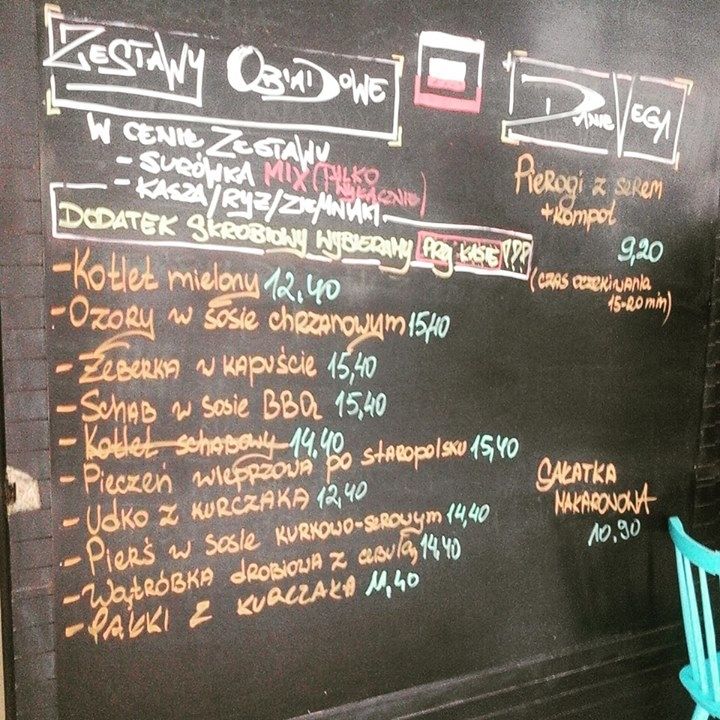 ZESTAWY OBIADOWE
W CENIE ZESTAWU
- SURÓWKA MIX (TYLKO WYŁĄCZNIE)
- KASZA/RYŻ/ZIEMNIAKI
DODATEK SKROBIOWY WYBIERAMY PRZY KASIE!!!
- Kotlet mielony 12,40
- Ozory w sosie chrzanowym 15,40
- Żeberka w kapuście 15,40
- Schab w sosie BBQ 15,40
- Kotlet schabowy 14,40
- Pieczeń wieprzowa po staropolsku 15,40
- Udko z kurczaka 12,40
- Pierś w sosie kurkowo-serowym 14,40
- Wątróbka drobiowa z cebulą 14,40
- Pałki z kurczaka 11,40
DANIE VEGA
Pierogi z serem
+ kompot
9,20
(czas oczekiwania
15-20 min)
SAŁATKA
MAKARONOWA
10,90